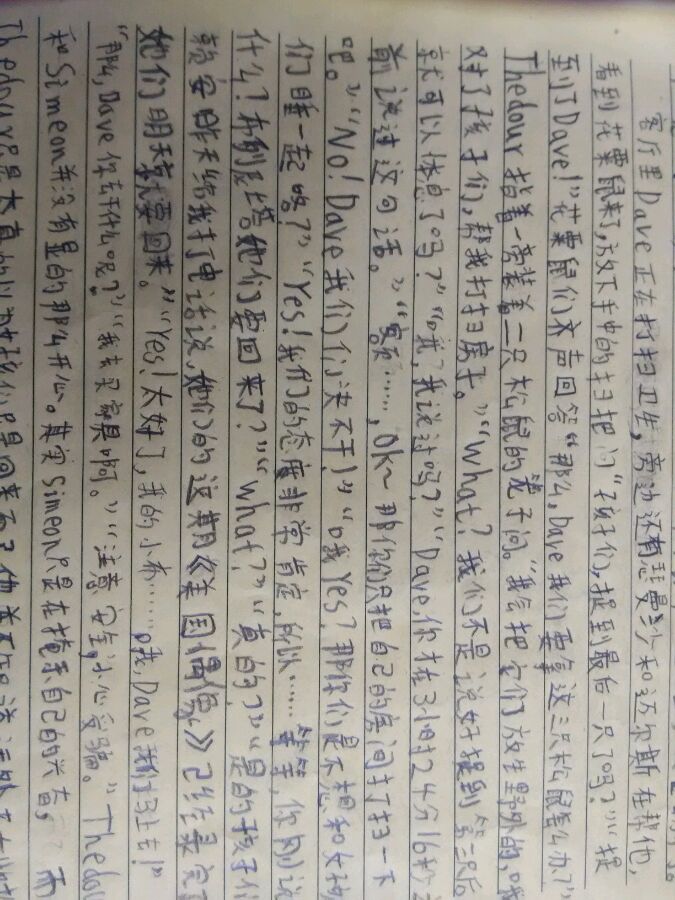 客厅里Dave正在打扫卫生,旁边还有恶曼沙和迈尔斯在帮他,
看到花栗鼠来了,放下手中的扫把问"孩子们,捉到最后一只了吗?""捉
到了Dave!"花栗鼠们齐声回答"那么,Dave我们要拿这三只松鼠怎么办?"
Thedour指着一旁装着三只松鼠的笼子问。"我会把它们放生野外的,哦
对了孩子们,帮我打扫房子。""what?我们不是说好捉到第三只后
就可以休息了吗?""哦?我说过吗?""Dave,你在3小时24分16秒之
前说过这句话。""寞……,OK~那你们只把自己的房间打扫一下
吧。""No!Dave我们决不干!""哦Yes?那你们是不想和女孩
们睡一起咯?""Yes!我们的态度非常肯定,所以……等等,你刚说
什么?布利尼塔她们要回来了?""what?""真的?""是的孩子们
就安昨天给我打电话说,她们的这期《美国偶像》已经录完了
她们明天就要回来。""Yes!太好了,我的小布……哦,Dave我们马上去!"
"那么,Dave你去干什么呢?""我去买家具啊。""注意安全,小心受骗。"Thedou
和Simeon并没有显的那么开心。其实Simeon只是在掩示自己的兴奋,而
Thedour是太真的以为女孩们只是回来